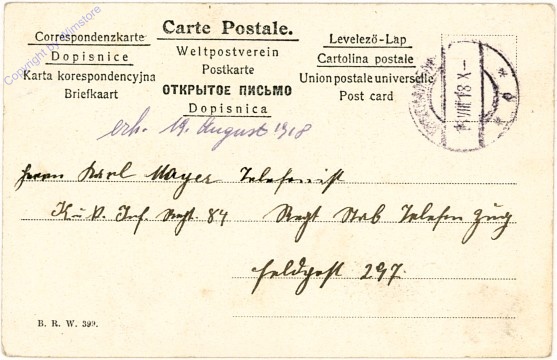 Copyright by filmstore
Carte Postale.
Correspondenzkarte
Dopisnice
Karta korespondencyjna
Briefkaart
Weltpostverein
Postkarte
ОТКРЫТОЕ ПИСЬМО
Dopisnica
Levelező-Lap
Cartolina postale
Union postale universelle
Post card
VIII 18 X
erh. 19. August 1918
Herrn Karl Mayer Telefonist
K. u. K. Inf. Regt. 84 Regt Stab Telefon Zug
Feldpost 297.
B. R. W. 399.